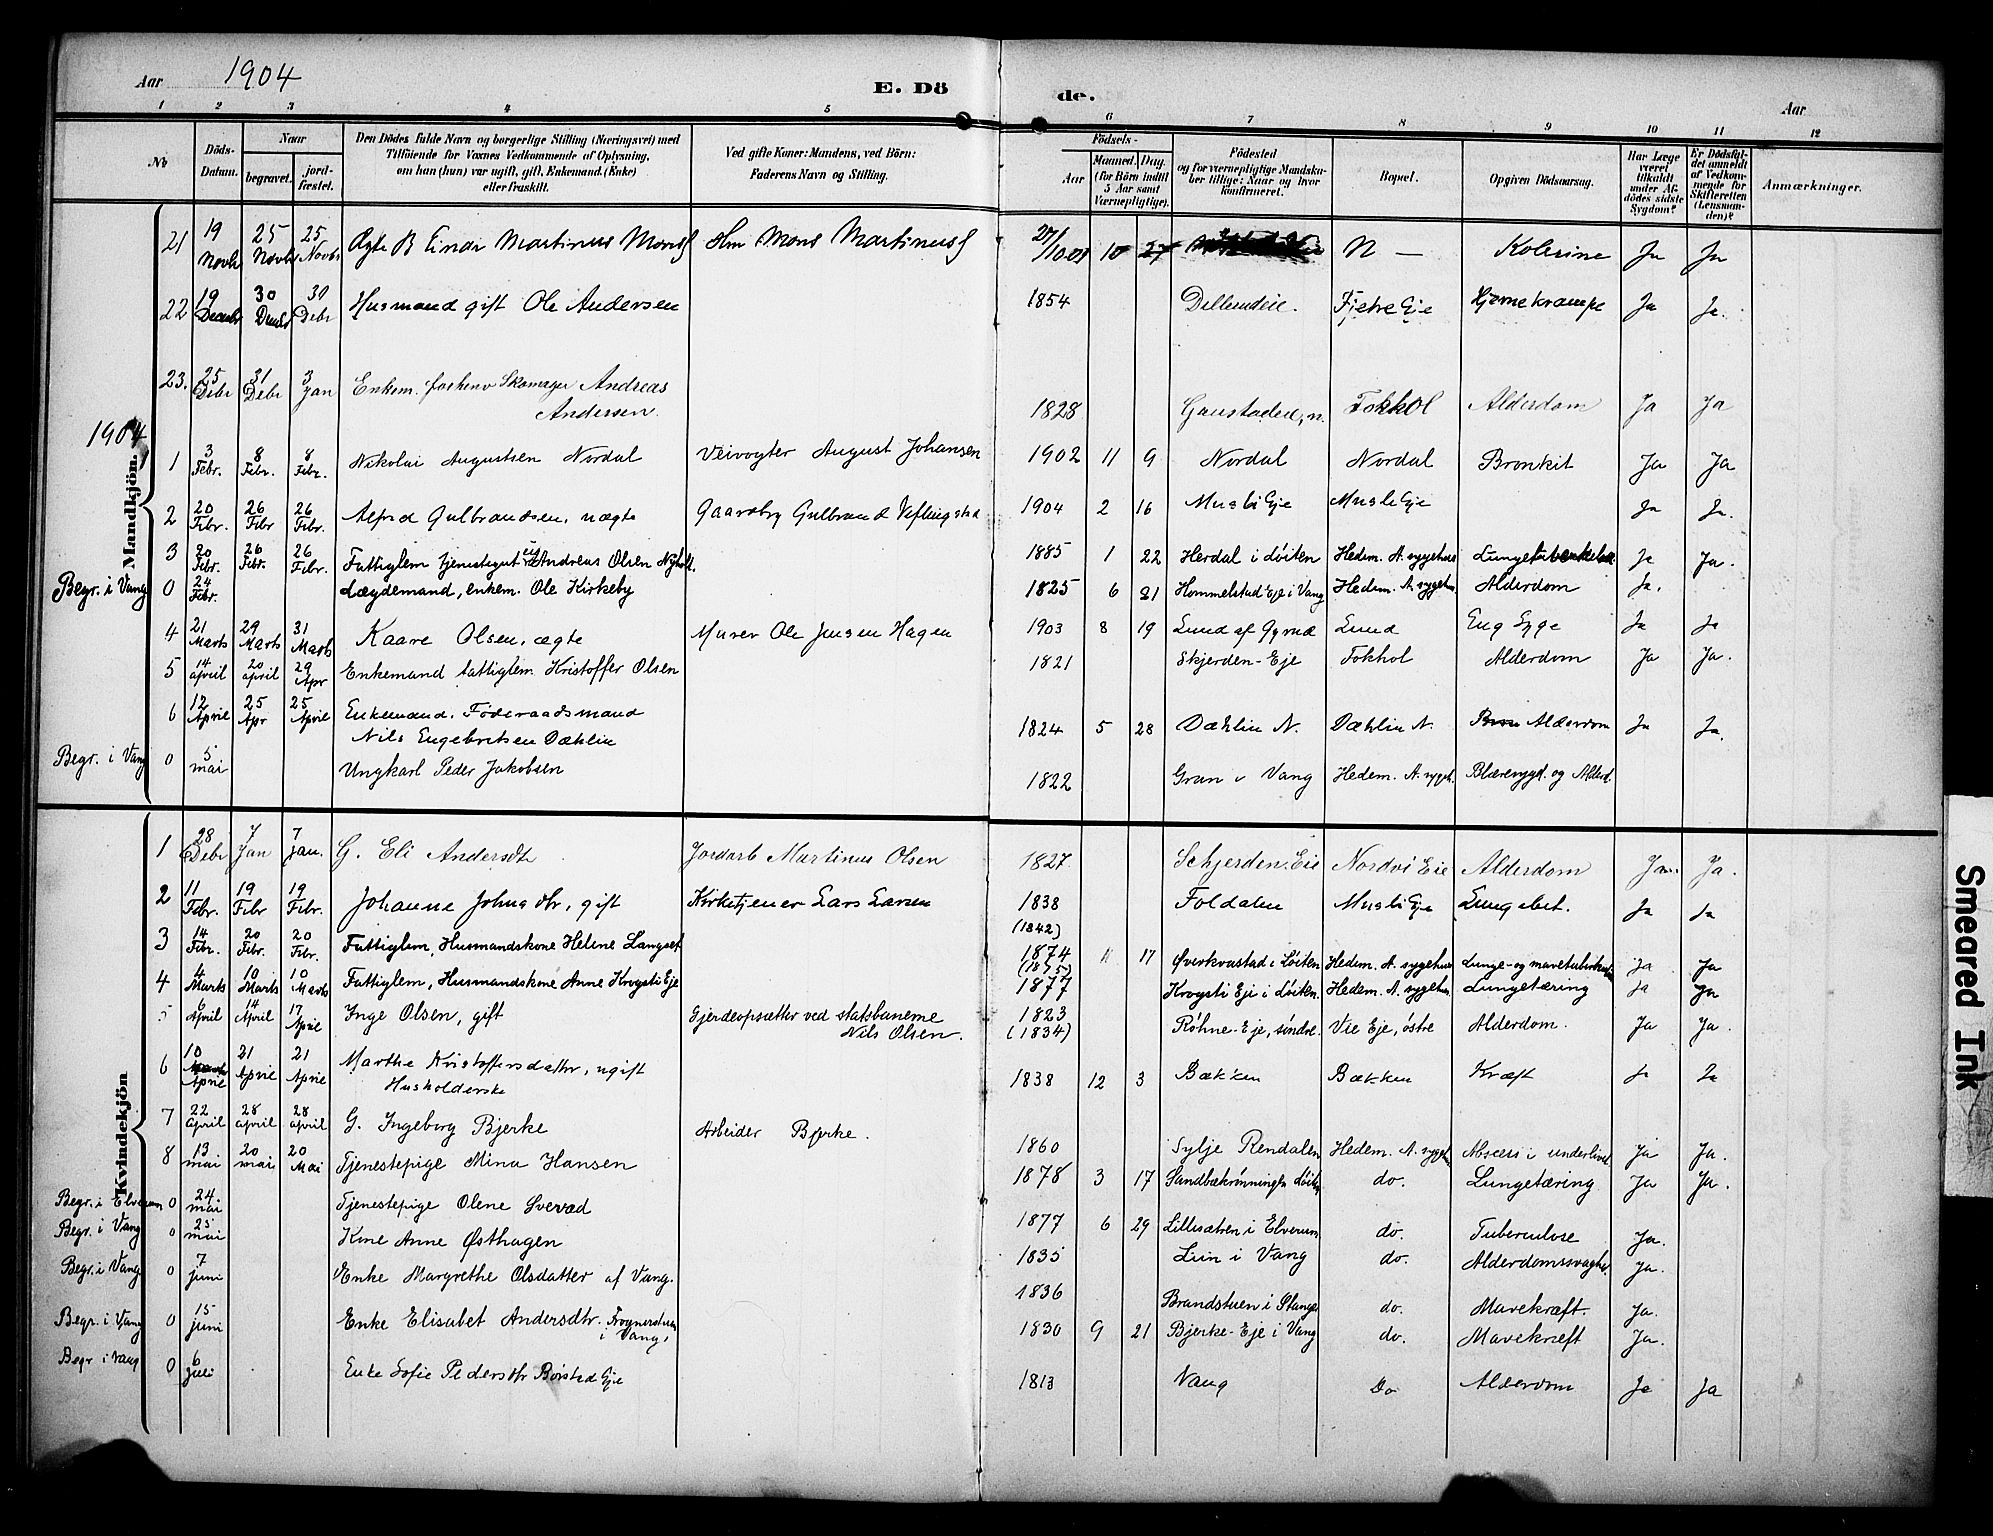 Aar 1904
E. Dö
de.
Aar
1 2 3 4 5 6 7 8 9 10 11 12
No
Döds-Datum.
Naar
begravet.
jord-fæstet.
Den Dödes fulde Navn og borgerlige Stilling (Næringsvei) med
Tilföiende for Voxnes Vedkommende af Oplysning,
om han (hun) var ugift, gift, Enkemand, (Enke)
eller fraskilt.
Ved gifte Koner: Mandens, ved Börn:
Faderens Navn og Stilling.
Födsels-
Aar
Maaned. Dag.
(for Börn indtil
5 Aar samt
Værnepligtige).
Födested
og for værnepligtige Mandska-
ber tillige: Naar og hvor
konfirmeret.
Bopæl.
Opgiven Dödsaarsag.
Har Læge
været
tilkaldt
under Af-
dödes sidste
Sygdom?
Er Dödsfal-
det anmeldt
af Vedkom-
mende for
Skifteretten
(Lensman-
den)?
Anmærkninger.
Mandkjön.
21 19 Novbr 25 Novbr 25 Novbr Ægte B Einar Martinus Mons Hm Mons Martinus 27/10.03 10 27 N — Kolerine Ja Ja
22 19 Decembr 30 Decbr 30 Debr Husmand gift Ole Andersen 1854 Dellerudeie. Fjetre Eje Hjernekrampe Ja Ja.
23. 25 Debr 31 Debr 3 Jan Enkem. forhenv Skomager Andreas
Andersen. 1828 Fokhol Alderdom Ja Ja
1904
1 3 Febr. 8 Febr. 8 Febr. Nikolai Augustsen Nordal Veivogter August Johansen 1902 11 9 Nordal Nordal Bronkit Ja Ja
2 20 Febr. 26 Febr 26 Febr. Alfred Gulbrandsen, uægte Gaardbr Gulbrand Veflingstad 1904 2 16 Musli Eje Musli Eje Ja Ja.
3 20 Febr. 26 Febr. 26 Febr. Fattiglem tjenestegut Andreas Olsen 1885 1 22 Herdal i Løiten Hedem. A. sygehus Lungetuberkulose Ja Ja.
Begr. i Vang 0 24 Febr. Lægdemand, enkem. Ole Kirkeby 1825 6 21 Hommelstad Eje i Vang Hedem. A. sygehus Alderdom Ja.
4 21 Marts 29 Marts 31 Marts Kaare Olsen, ægte Murer Ole Jensen Hagen 1903 8 19 Lund Lund Eng Syge Ja Ja
5 14 april 20 april 29 Apr Enkemand fattiglem Kristoffer Olsen 1821 Skjerden-Eje Fokhol Alderdom Ja Ja.
6 12 Aprile 25 Apr 25 Aprile Enkemand. Föderaadsmand
Nils Engebretsen Dæhlin 1824 5 28 Dæhlin N. Dæhlin N. Alderdom Ja Ja.
Begr. i Vang 0 5 mai Ungkarl Peder Jakobsen 1822 Gran i Vang Hedem. A. sygeh. Blæresygd. og Alderd.
Kvindekjön
1 28 Debr 7 Jan 7 Jan. G. Eli Andersdtr Jordarb Martinus Olsen 1827 Schjerden Eie Nordvi Eie Alderdom Ja. Ja.
2 11 Febr. 19 Febr 19 Febr. Johanne Johnsdtr, gift Kirketjener Lars Larsen 1838 (1842) Foldalen Musli Eje Lungebet. Ja Ja
3 14 Febr. 20 Febr. 20 Febr. Fattiglem, Husmandskone Helene Langset 1874 (1875) 11 17 Øverkvastad i Løiten Hedem. A. sygehus Lunge- og mavetuberkulose Ja Ja
4 4 Marts 10 Marts 10 Marts Fattiglem, Husmandskone Anne Krogsti Eje 1877 Krogsti Eje i Løiten. Hedem. A. sygehus Lungetæring Ja Ja
5 6 April 14 April 17 April Inge Olsen, gift Gjerdeopsætter ved statsbanerne
Nils Olsen. 1823 (1834) Røhne-Eje, søndre Vie Eje, östre Alderdom. Ja Ja.
6 10 Aprile 21 Aprile 21 Aprile Marthe Kristoffersdatter, ugift
Husholderske 1838 12 3 Bækken Bækken Kræft Ja Ja
7 22 april 28 april 28 april G. Ingeborg Bjerke Arbeider Bjerke. 1860 Sylje Rendalen Hedem. A. sygehus Absces i underlivet Ja Ja.
8 13 mai 20 mai 20 Mai Tjenestepige Mina Hansen 1878 3 17 do. Lungetæring Ja Ja.
Begr. i Elverum 0 24 mai Tjenestepige Olene Svevad 1877 6 29 Lillesætren i Elverum do. Tuberculose Ja.
Begr. i Vang 0 25 mai Kone Anne Østhagen 1835 Lun i Vang do. Alderdomssvaghed Ja.
Begr. i Vang 0 7 juni Enke Margrethe Olsdatter af Vang. 1836 Brandstuen i Stange do. Mavekræft. Ja.
Begr. i Vang 0 15 juni Enke Elisabet Andersdtr. Frognerstuen
i Vang, 1830 9 21 Bjerke-Eje i Vang do. Mavekræft Ja.
Begr i Vang 0 6 juli Enke Sofie Pedersdtr Børstad Eje 1813 Vang Do Alderdom Ja Ja
Smeared Ink